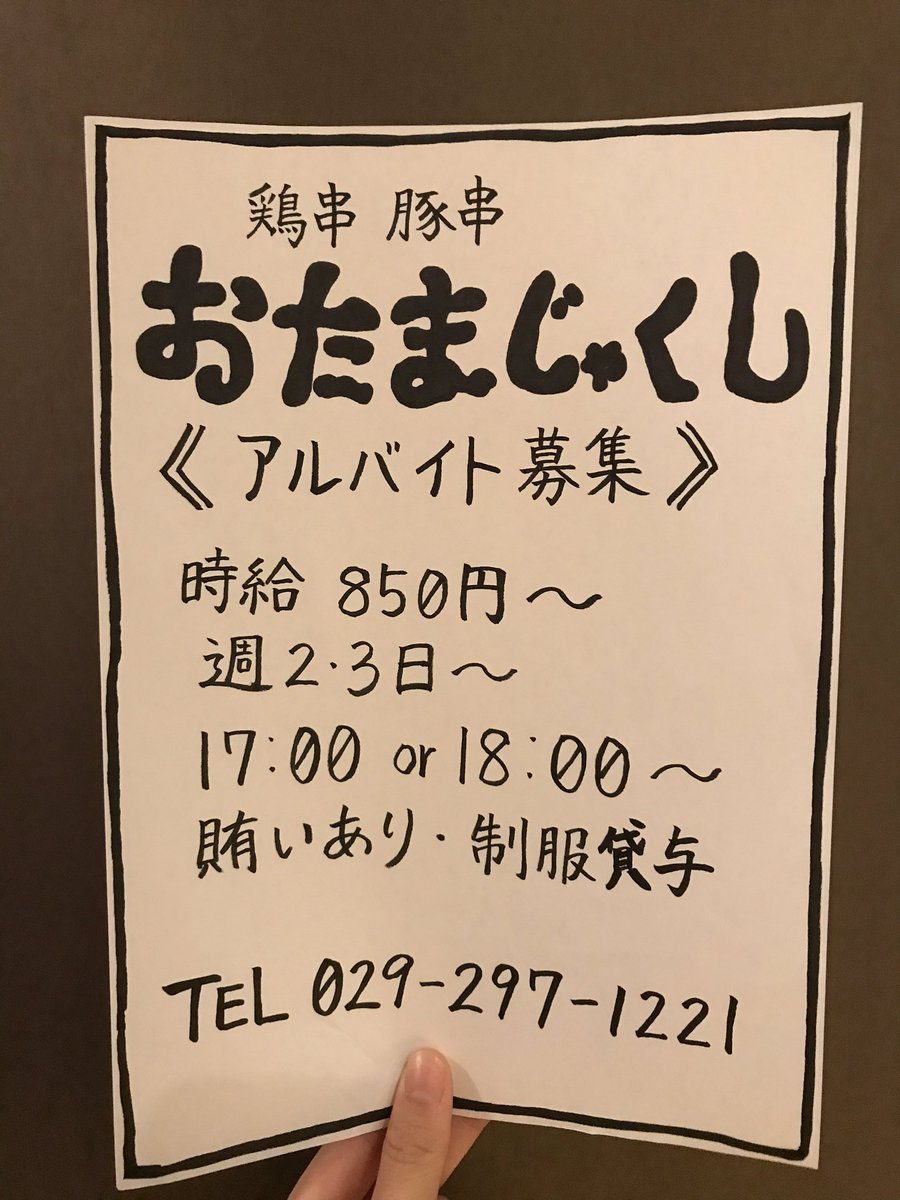 鶏串 豚串
おたまじゃくし
《アルバイト募集》
時給 850円〜
週2・3日〜
17:00 or 18:00〜
賄いあり・制服貸与
TEL 029-297-1221